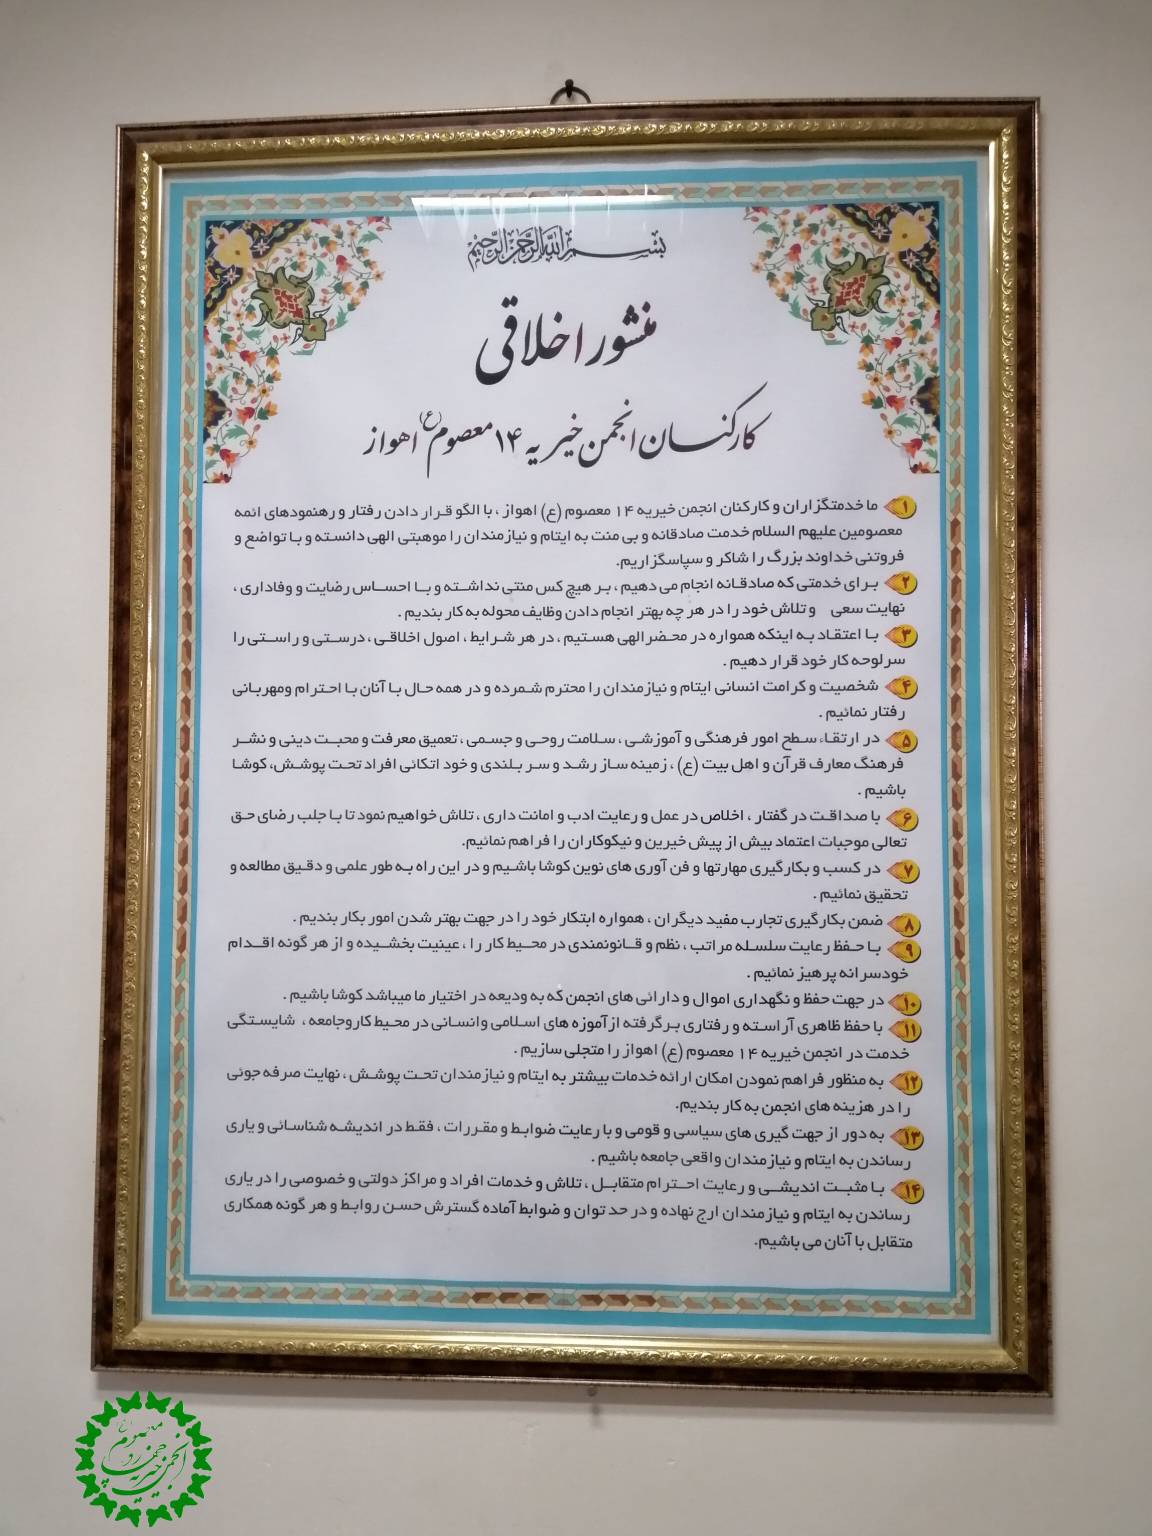 بسم الله الرحمن الرحیم
منشور اخلاقی
کارکنان انجمن خیریه ۱۴ معصوم (ع) اهواز
۱ ما خدمتگزاران و کارکنان انجمن خیریه ۱۴ معصوم (ع) اهواز ، با الگو قرار دادن رفتار و رهنمودهای ائمه
معصومین علیهم السلام خدمت صادقانه و بی منت به ایتام و نیازمندان را موهبتی الهی دانسته و با تواضع و
فروتنی خداوند بزرگ را شاکر و سپاسگزاریم.
۲ برای خدمتی که صادقانه انجام می دهیم ، بر هیچ کس منتی نداشته و با احساس رضایت و وفاداری ،
نهایت سعی و تلاش خود را در هر چه بهتر انجام دادن وظایف محوله به کار بندیم .
۳ با اعتقاد به اینکه همواره در محضر الهی هستیم ، در هر شرایط ، اصول اخلاقی ، درستی و راستی را
سرلوحه کار خود قرار دهیم .
۴ شخصیت و کرامت انسانی ایتام و نیازمندان را محترم شمرده و در همه حال با آنان با احترام ومهربانی
رفتار نمائیم .
۵ در ارتقاء سطح امور فرهنگی و آموزشی ، سلامت روحی و جسمی ، تعمیق معرفت و محبت دینی و نشر
فرهنگ معارف قرآن و اهل بیت (ع) ، زمینه ساز رشد و سر بلندی و خود اتکائی افراد تحت پوشش، کوشا
باشیم .
۶ با صداقت در گفتار ، اخلاص در عمل و رعایت ادب و امانت داری ، تلاش خواهیم نمود تا با جلب رضای حق
تعالی موجبات اعتماد بیش از پیش خیرین و نیکوکاران را فراهم نمائیم.
۷ در کسب و بکارگیری مهارتها و فن آوری های نوین کوشا باشیم و در این راه به طور علمی و دقیق مطالعه و
تحقیق نمائیم .
۸ ضمن بکارگیری تجارب مفید دیگران ، همواره ابتکار خود را در جهت بهتر شدن امور بکار بندیم .
۹ با حفظ رعایت سلسله مراتب ، نظم و قانونمندی در محیط کار را ، عینیت بخشیده و از هر گونه اقدام
خودسرانه پرهیز نمائیم .
۱۰ در جهت حفظ و نگهداری اموال و دارائی های انجمن که به ودیعه در اختیار ما میباشد کوشا باشیم .
۱۱ با حفظ ظاهری آراسته و رفتاری برگرفته از آموزه های اسلامی وانسانی در محیط کاروجامعه ، شایستگی
خدمت در انجمن خیریه ۱۴ معصوم (ع) اهواز را متجلی سازیم .
۱۲ به منظور فراهم نمودن امکان ارائه خدمات بیشتر به ایتام و نیازمندان تحت پوشش ، نهایت صرفه جوئی
را در هزینه های انجمن به کار بندیم.
۱۳ به دور از جهت گیری های سیاسی و قومی و با رعایت ضوابط و مقررات ، فقط در اندیشه شناسائی و یاری
رساندن به ایتام و نیازمندان واقعی جامعه باشیم .
۱۴ با مثبت اندیشی و رعایت احترام متقابل ، تلاش و خدمات افراد و مراکز دولتی و خصوصی را در یاری
رساندن به ایتام و نیازمندان ارج نهاده و در حد توان و ضوابط آماده گسترش حسن روابط و هر گونه همکاری
متقابل با آنان می باشیم.
انجمن خیریه چهارده معصوم (ع)